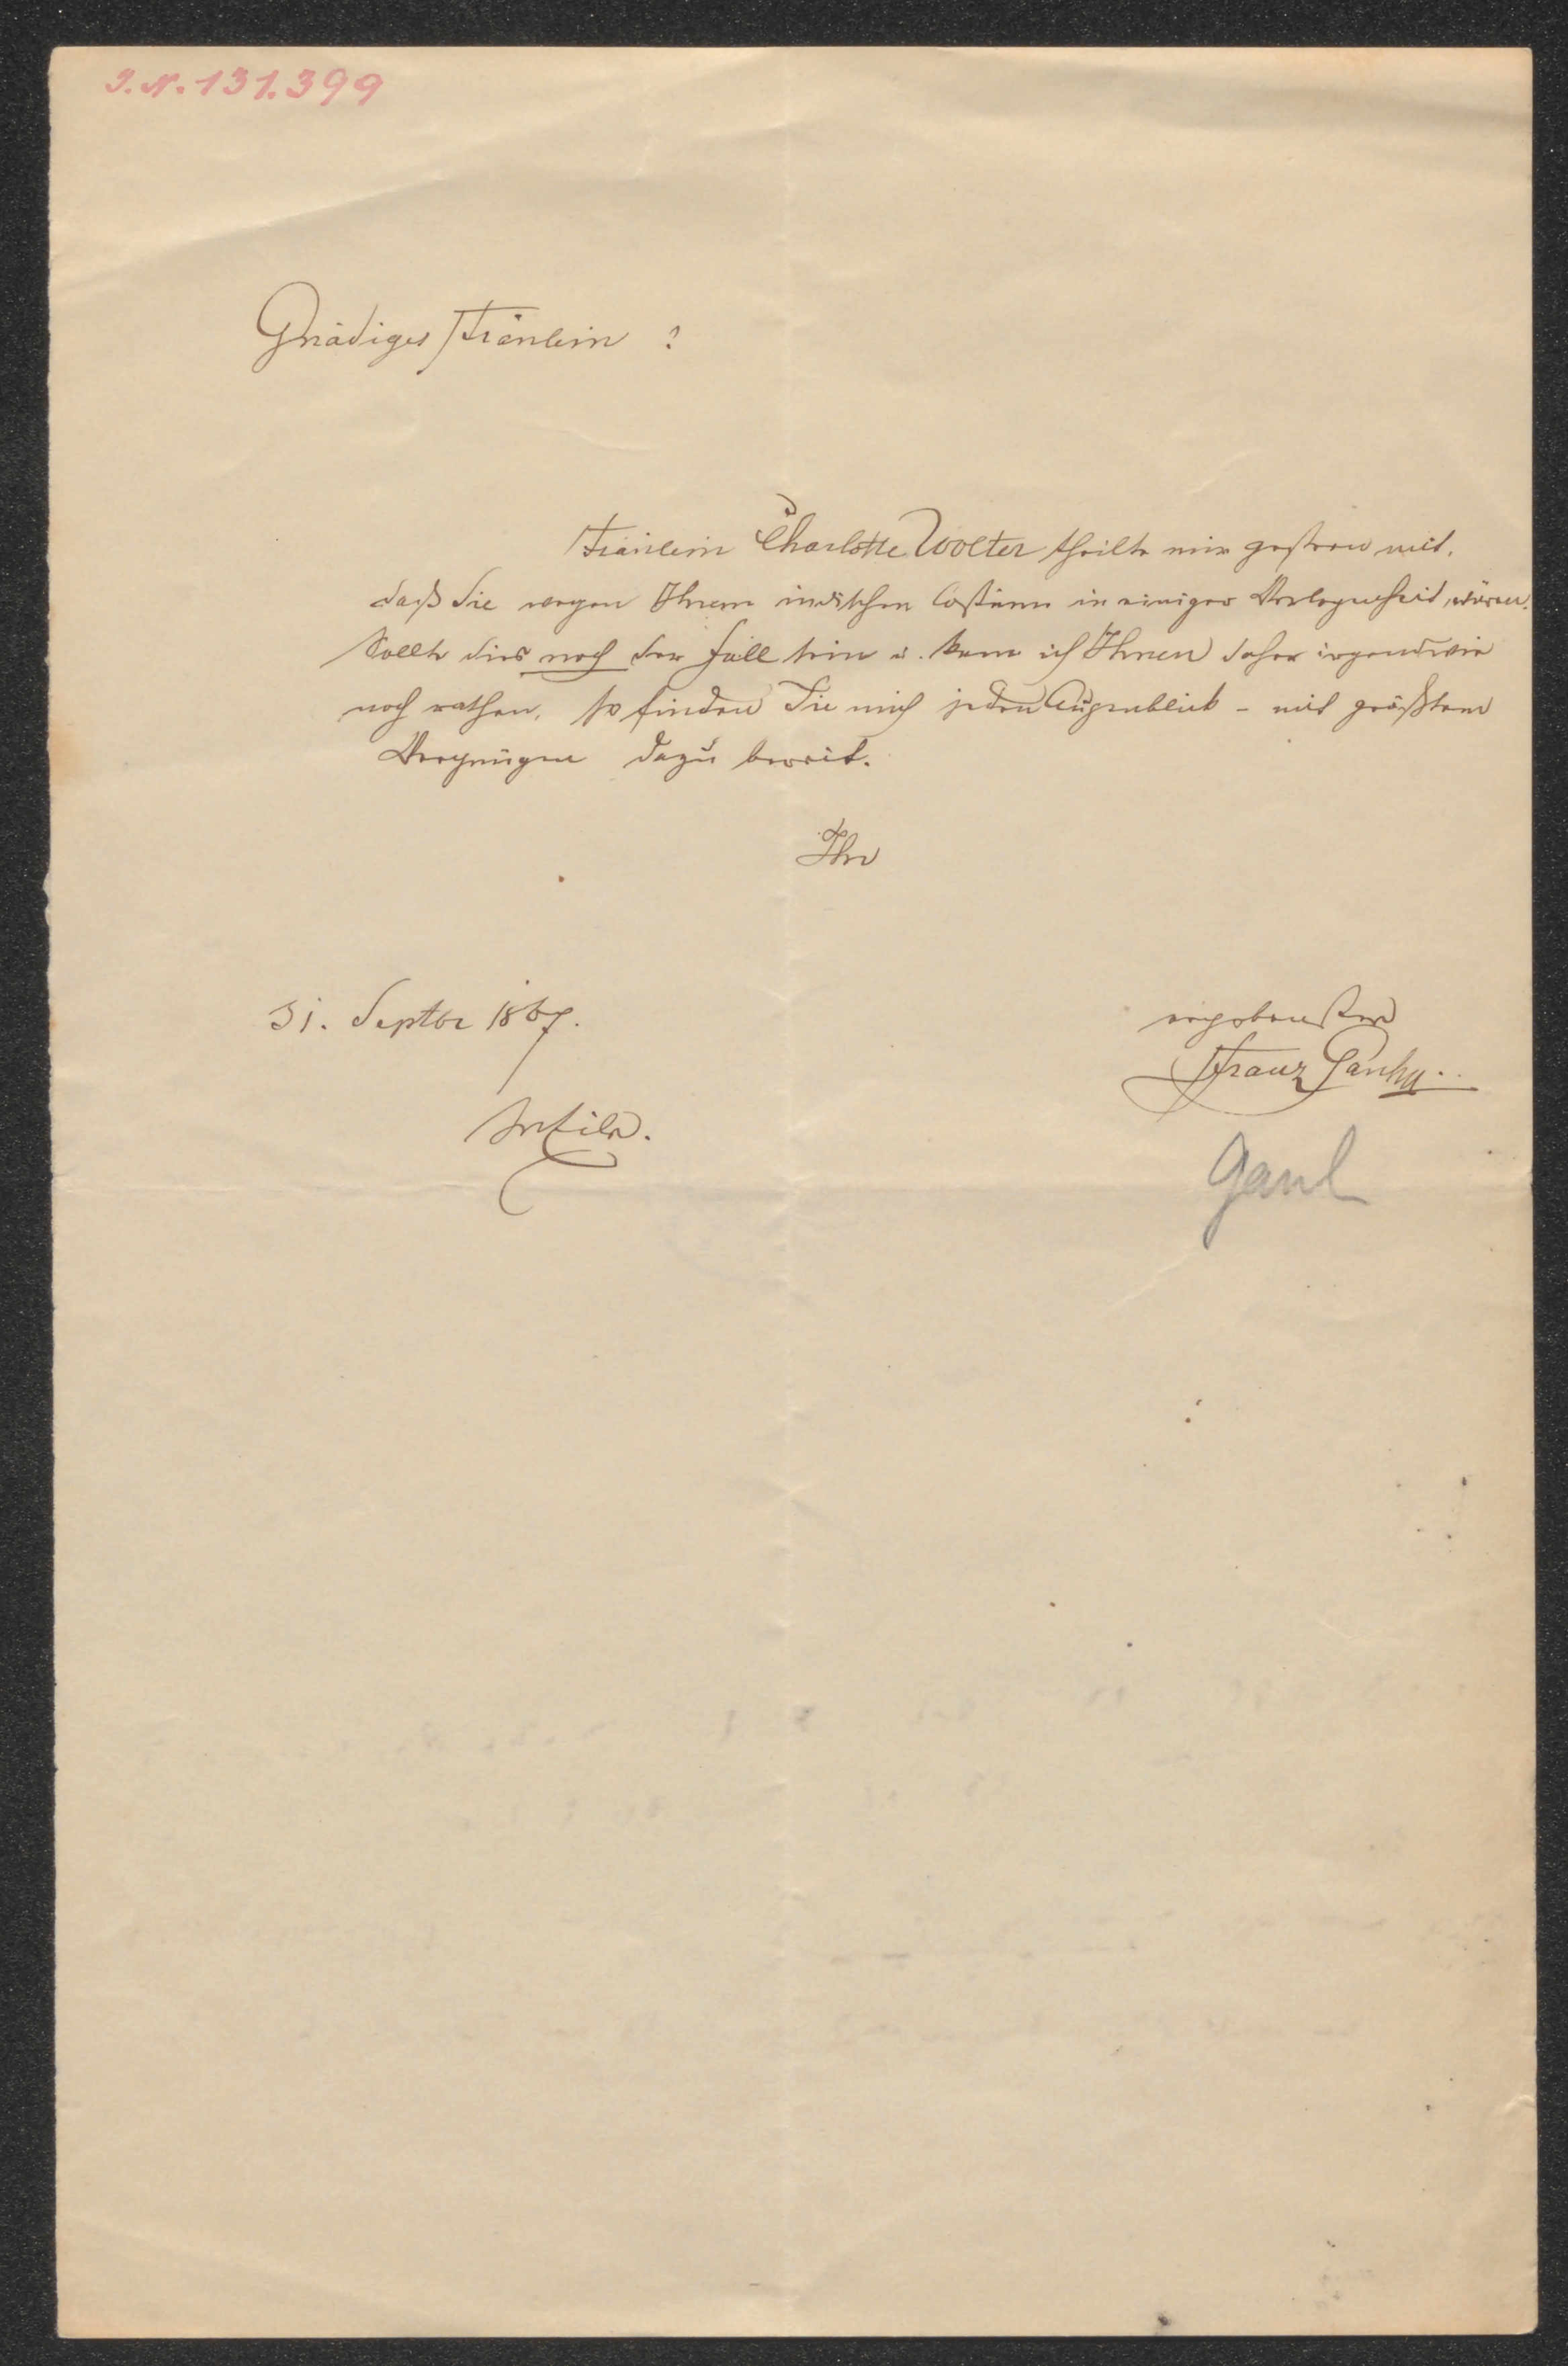 I. N. 131.399
Gnädiges Fräulein !
Fräulein Charlotte Wolter theilte mir gestern mit,
daß Sie wegen Ihrem indischen Costüme in einiger Verlegenheit wären.
Sollte dies noch der Fall sein u. kann ich Ihnen daher irgendwie
noch rathen, so finden Sie mich jeden Augenblick – mit größtem
Vergnügen dazu bereit.
Ihr
31. Septbr 1867.
ergebenster
Franz
In Eile.
Gaul